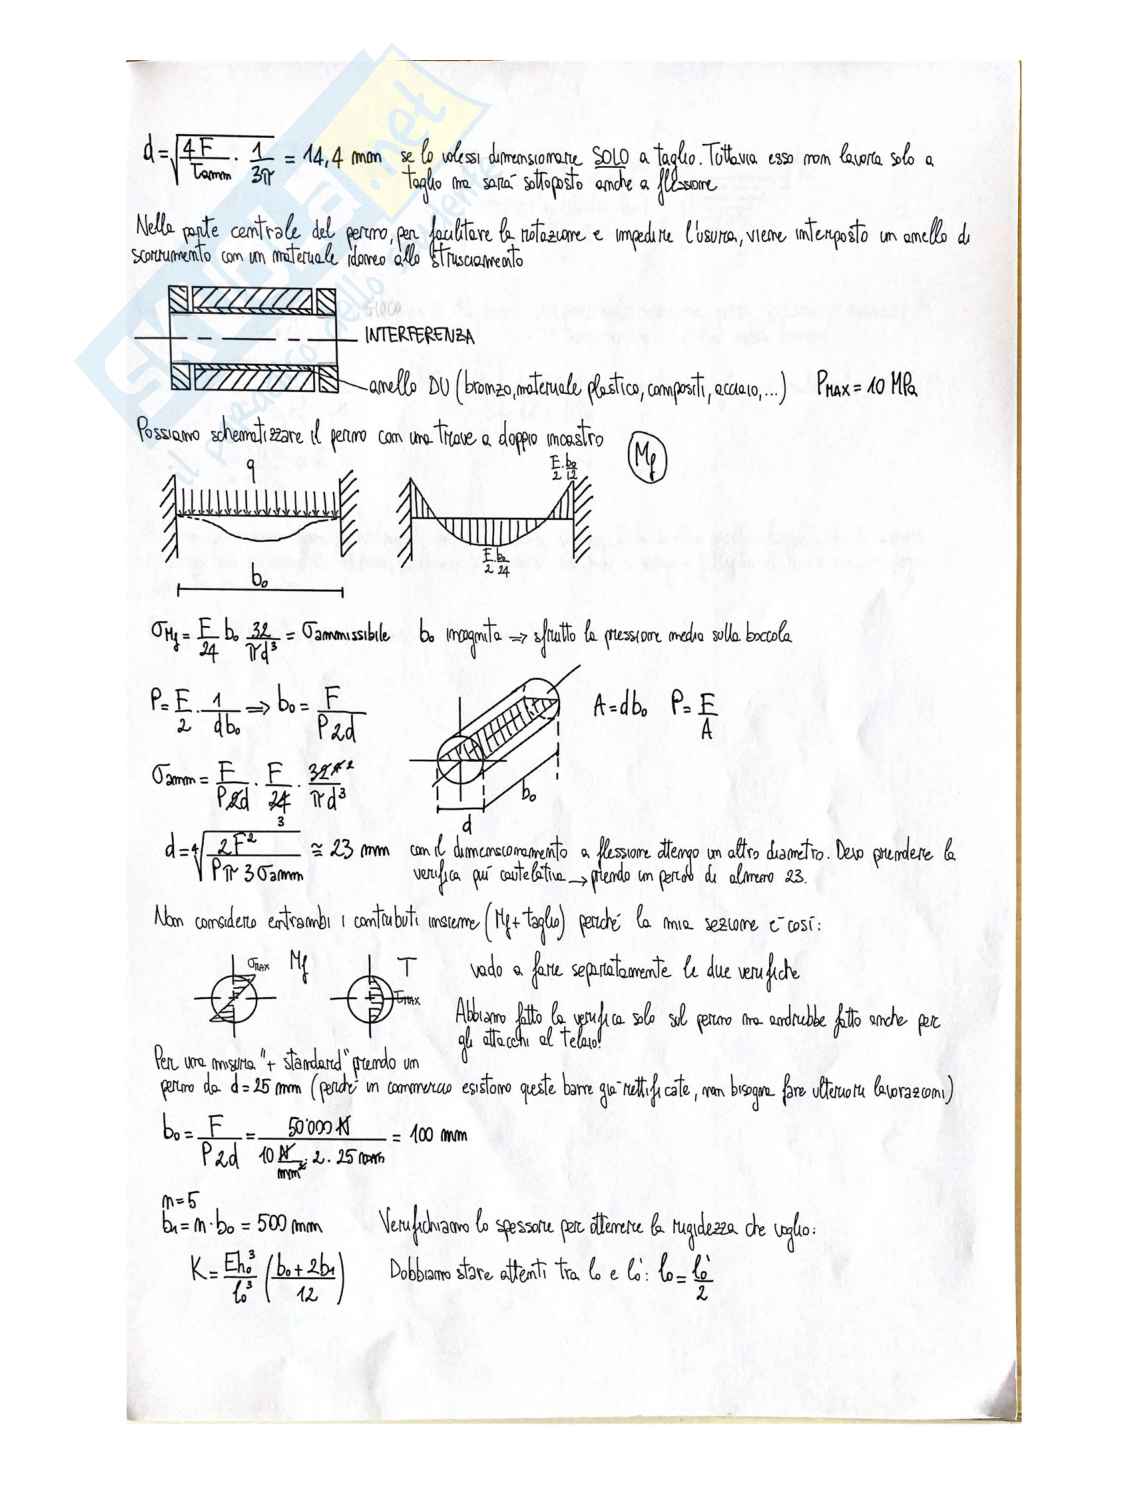 d = √(4F/τamm · 1/3π) = 14,4 mm se lo volessi dimensionare SOLO a taglio. Tuttavia esso non lavora solo a
taglio ma sarà sottoposto anche a flessione
Nella parte centrale del perno, per facilitare la rotazione e impedire l'usura, viene interposto un anello di
scorrimento con un materiale idoneo allo strusciamento
GIOCO
INTERFERENZA
anello DU (bronzo, materiale plastico, compositi, acciaio, ...) PMAX = 10 MPa
Possiamo schematizzare il perno con una trave a doppio incastro
Mf
q
F/2 · b₀/12
F/2 · b₀/24
b₀
σMf = F/24 b₀ 32/πd³ = σammissibile b₀ incognita ⇒ sfrutto la pressione media sulla boccola
P = F/2 · 1/db₀ ⇒ b₀ = F/P2d
A = db₀ P = F/A
σamm = F/P2d · F/24 · 32/πd³
3
2
b₀
d
d = ⁴√(2F²/Pπ3σamm) ≅ 23 mm con il dimensionamento a flessione ottengo un altro diametro. Devo prendere la
verifica più cautelativa → prendo un perno di almeno 23.
Non considero entrambi i contributi insieme (Mf + taglio) perché la mia sezione è così:
σMAX Mf T τMAX vado a fare separatamente le due verifiche
Abbiamo fatto la verifica solo sul perno ma andrebbe fatto anche per
gli attacchi al telaio!
Per una misura "+ standard" prendo un
perno da d = 25 mm (perché in commercio esistono queste barre già rettificate, non bisogna fare ulteriori lavorazioni)
b₀ = F/P2d = 50'000 N/(10 N/mm² · 2 · 25 mm) = 100 mm
n = 5
b₁ = n · b₀ = 500 mm Verifichiamo lo spessore per ottenere la rigidezza che voglio:
K = Eh₀³/l₀³ ((b₀ + 2b₁)/12) Dobbiamo stare attenti tra l₀ e l₀': l₀ = l₀'/2
SKUOLA.net
il paradiso dello studente